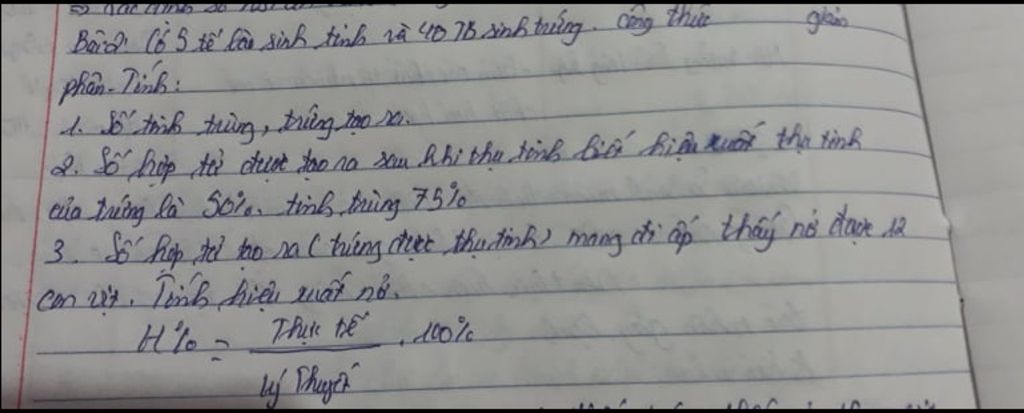 Bài 2: Có 5 tế bào sinh tinh và 40 TB sinh trứng. công thức giảm
phân. Tính:
1. Số tinh trùng, trứng tạo ra.
2. Số hợp tử được tạo ra sau khi thụ tinh biết hiệu xuất thụ tinh
của trứng là 50%. tinh trùng 75%
3. Số hợp tử tạo ra (trứng được thụ tinh) mang đi ấp thấy nở được 12
con vịt. Tính hiệu xuất nở.
H% = Thực tế . 100%
Lý Thuyết